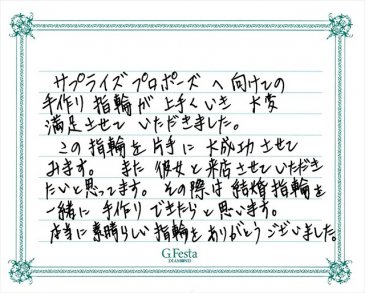 サプライズプロポーズへ向けての
手作り指輪が上手くいき 大変
満足させていただきました。
この指輪を片手に大成功させて
おます。 また彼女と来店させていただき
たいと思ってます。その際は結婚指輪を
一緒に手作りできたらと思います。
本当に素晴らしい指輪をありがとうございました。
G.Festa
DIAMOND